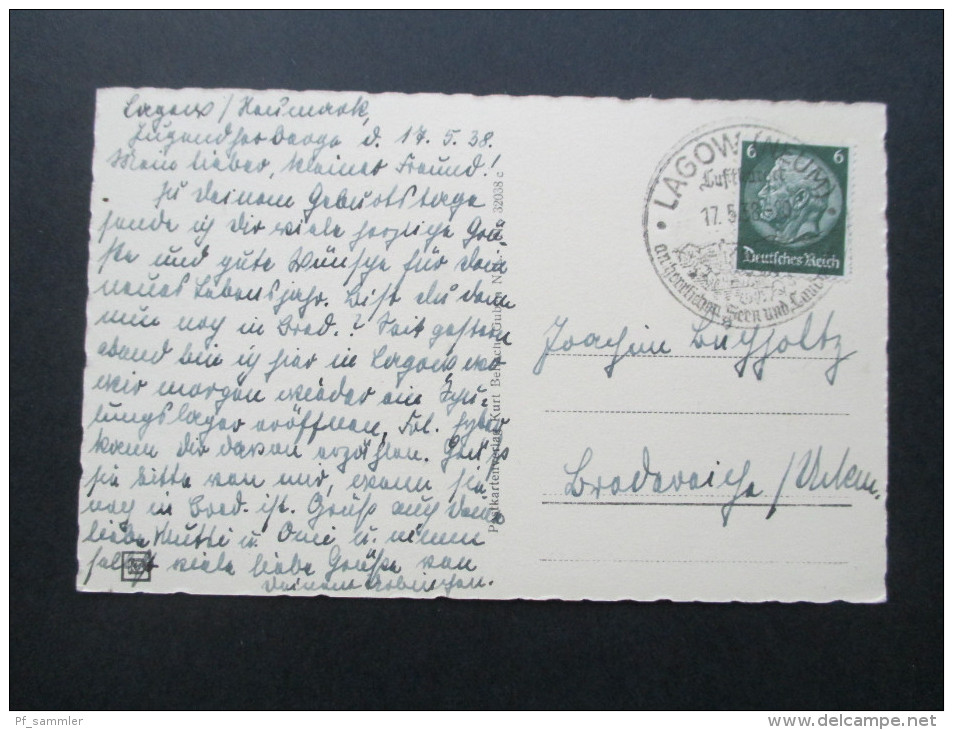 Lagow/Neumark,
Jugendherberge d. 17.5.38.
Mein lieber, kleiner Freund!
Zu Deinem Geburtstage
sende ich Dir viele herzliche Grü-
ße und gute Wünsche für Dein
neues Lebensjahr. Bist du denn
nun noch in Bred.? Seit gestern
abend bin ich hier in Lagow wo
wir morgen wieder ein Schu-
lungslager eröffnen. Frl.
kann Dir davon erzählen. Grüß
sie bitte von mir, wenn sie
noch in Bred. ist. Grüß auch Deine
liebe Mutti u. Omi u. nimm
selbst viele liebe Grüße von
Deinem
Postkartenverlag Kurt Guben N.-L. 32038 c
LAGOW (NEUM)
Luftkurort
17.5.38
an herrlichen Seen und
6 6
Deutsches Reich
Joachim Buchholtz
Brodereiche/Uckerm.
Pf_sammler
www.delcampe.net